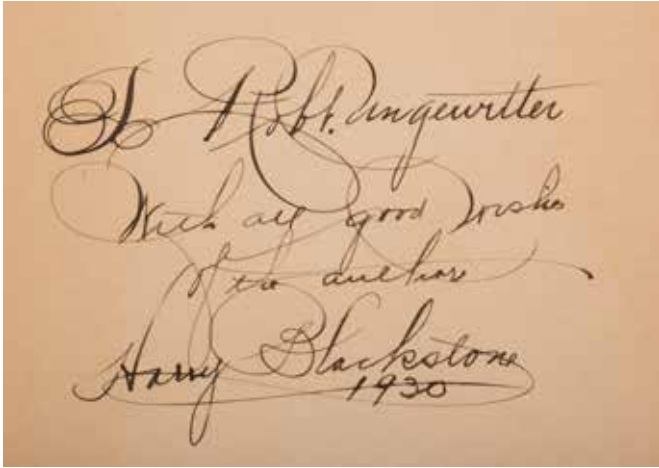 To Robt. Ungewitter
With all good wishes
of the author
Harry Blackstone
1930